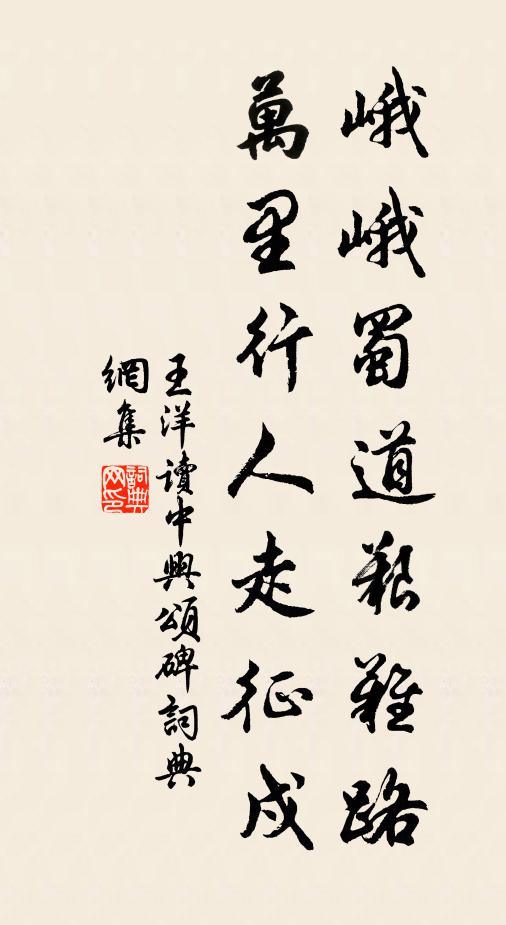 峨峨蜀道艱難路
萬里行人走征戍
王洋讀中興頌碑詞典
網集
詞典
网印